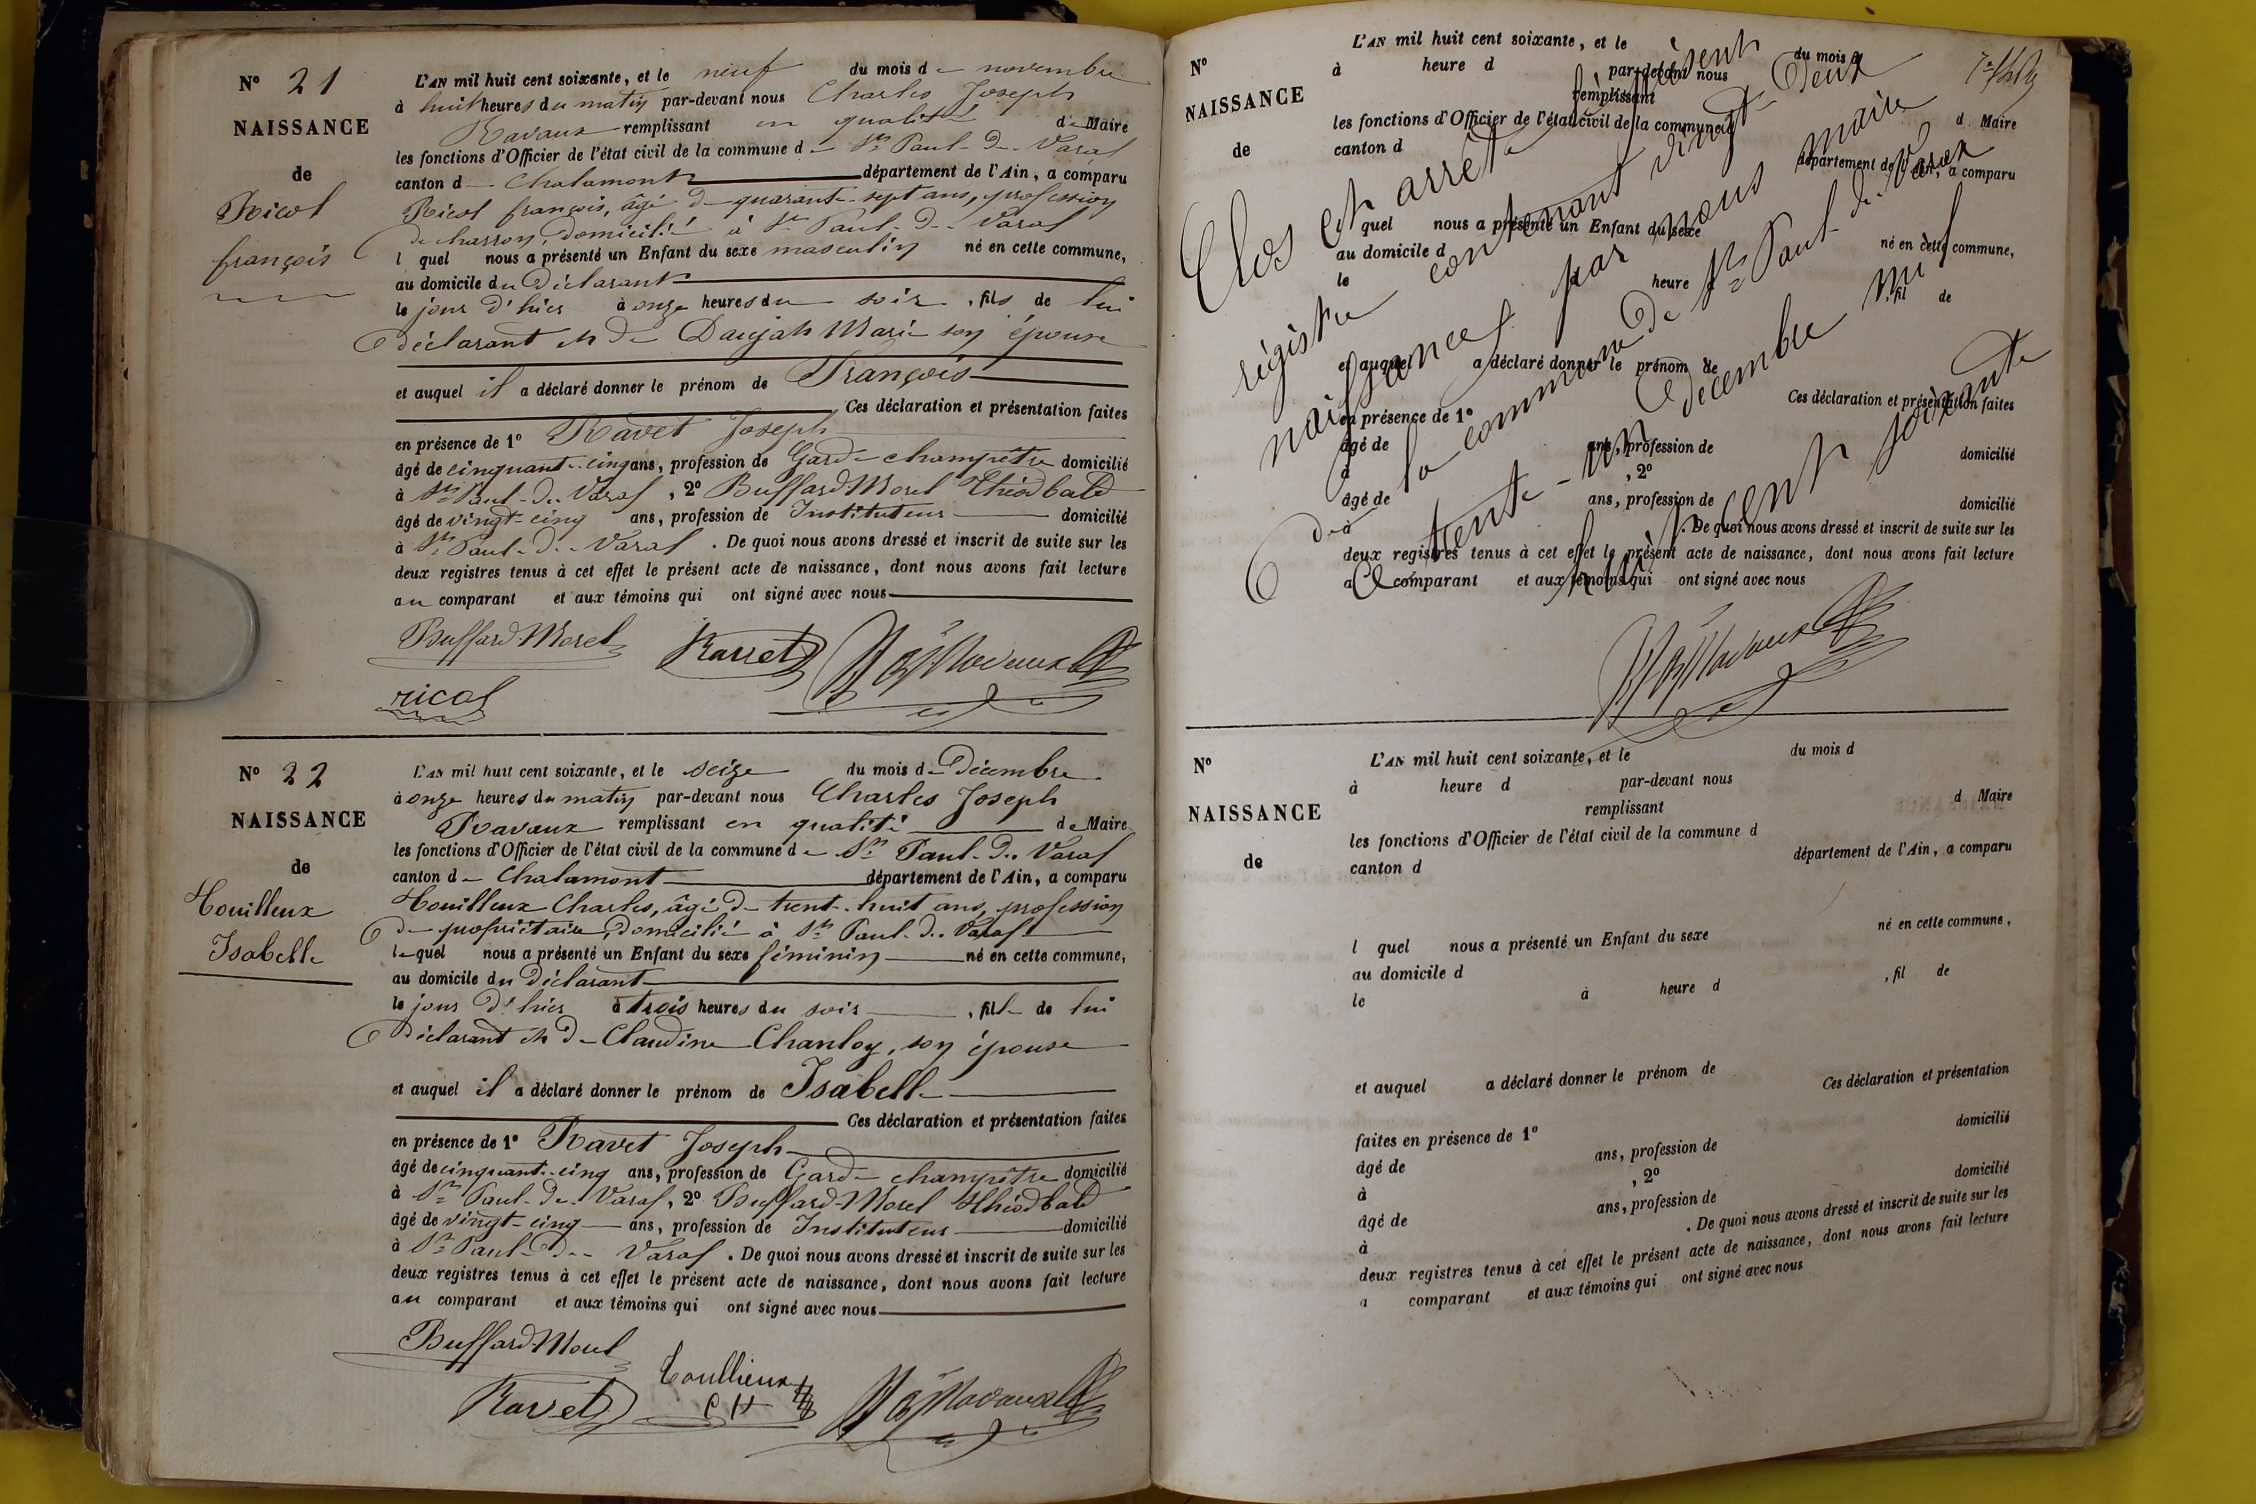 N° 21
NAISSANCE
de
Ricol
françois
L'AN mil huit cent soixante, et le neuf du mois de novembre
à huit heures du matin par-devant nous Charles Joseph
Ravaux remplissant en qualité de Maire
les fonctions d'Officier de l'état civil de la commune de St Paul-de-Varax
canton de Chalamont département de l'Ain, a comparu
Ricol françois, âgé de quarante-sept ans, profession
de charron, domicilié à St Paul-de-Varax
l quel nous a présenté un Enfant du sexe masculin né en cette commune,
au domicile du Déclarant
le jour d'hier à onze heures du soir, fils de lui
déclarant et de Daujat Marie son épouse
et auquel il a déclaré donner le prénom de François
Ces déclaration et présentation faites
en présence de 1° Ravet Joseph
âgé de cinquante-cinq ans, profession de Garde champêtre domicilié
à St Paul-de-Varax, 2° Buffard-Morel Théodbald
âgé de vingt-cinq ans, profession de Instituteur domicilié
à St Paul-de-Varax. De quoi nous avons dressé et inscrit de suite sur les
deux registres tenus à cet effet le présent acte de naissance, dont nous avons fait lecture
au comparant et aux témoins qui ont signé avec nous
Buffard-Morel Ravet Ravaux
ricol
N° 22
NAISSANCE
de
Touilleux
Isabelle
L'AN mil huit cent soixante, et le seize du mois de Décembre
à onze heures du matin par-devant nous Charles Joseph
Ravaux remplissant en qualité de Maire
les fonctions d'Officier de l'état civil de la commune de St Paul-de-Varax
canton de Chalamont département de l'Ain, a comparu
Touilleux Charles, âgé de trente-huit ans, profession
de propriétaire, domicilié à St Paul-de-Varax
lequel nous a présenté un Enfant du sexe féminin né en cette commune,
au domicile du Déclarant
le jour d'hier à trois heures du soir, fille de lui
Déclarant et de Claudine Chanloy, son épouse
et auquel il a déclaré donner le prénom de Isabelle
Ces déclaration et présentation faites
en présence de 1° Ravet Joseph
âgé de cinquante-cinq ans, profession de Garde champêtre domicilié
à St Paul-de-Varax, 2° Buffard-Morel Théodbald
âgé de vingt-cinq ans, profession de Instituteur domicilié
à St Paul-de-Varax. De quoi nous avons dressé et inscrit de suite sur les
deux registres tenus à cet effet le présent acte de naissance, dont nous avons fait lecture
au comparant et aux témoins qui ont signé avec nous
Buffard-Morel
Ravet Toullieux CH Ravaux
N°
NAISSANCE
de
L'AN mil huit cent soixante, et le du mois d
à heure d par-devant nous
remplissant d Maire
les fonctions d'Officier de l'état civil de la commune d
canton d département de l'Ain, a comparu
l quel nous a présenté un Enfant du sexe né en cette commune,
au domicile d
le heure , fil de
et auquel a déclaré donner le prénom de
Ces déclaration et présentation faites
en présence de 1°
âgé de ans, profession de domicilié
à , 2°
âgé de ans, profession de domicilié
à . De quoi nous avons dressé et inscrit de suite sur les
deux registres tenus à cet effet le présent acte de naissance, dont nous avons fait lecture
a comparant et aux témoins qui ont signé avec nous
Clos et arrêté le présent
régistre contenant vingt-deux
naissances par nous maire
de la commune de St Paul-de-Varax
Ce trente-un Décembre mil
huit cent soixante
Ravaux
N°
NAISSANCE
de
L'AN mil huit cent soixante, et le du mois d
à heure d par-devant nous
remplissant d Maire
les fonctions d'Officier de l'état civil de la commune d
canton d département de l'Ain, a comparu
l quel nous a présenté un Enfant du sexe né en cette commune,
au domicile d
le à heure d , fil de
et auquel a déclaré donner le prénom de Ces déclaration et présentation
faites en présence de 1° domicilié
âgé de ans, profession de
à , 2° domicilié
âgé de ans, profession de
à . De quoi nous avons dressé et inscrit de suite sur les
deux registres tenus à cet effet le présent acte de naissance, dont nous avons fait lecture
a comparant et aux témoins qui ont signé avec nous